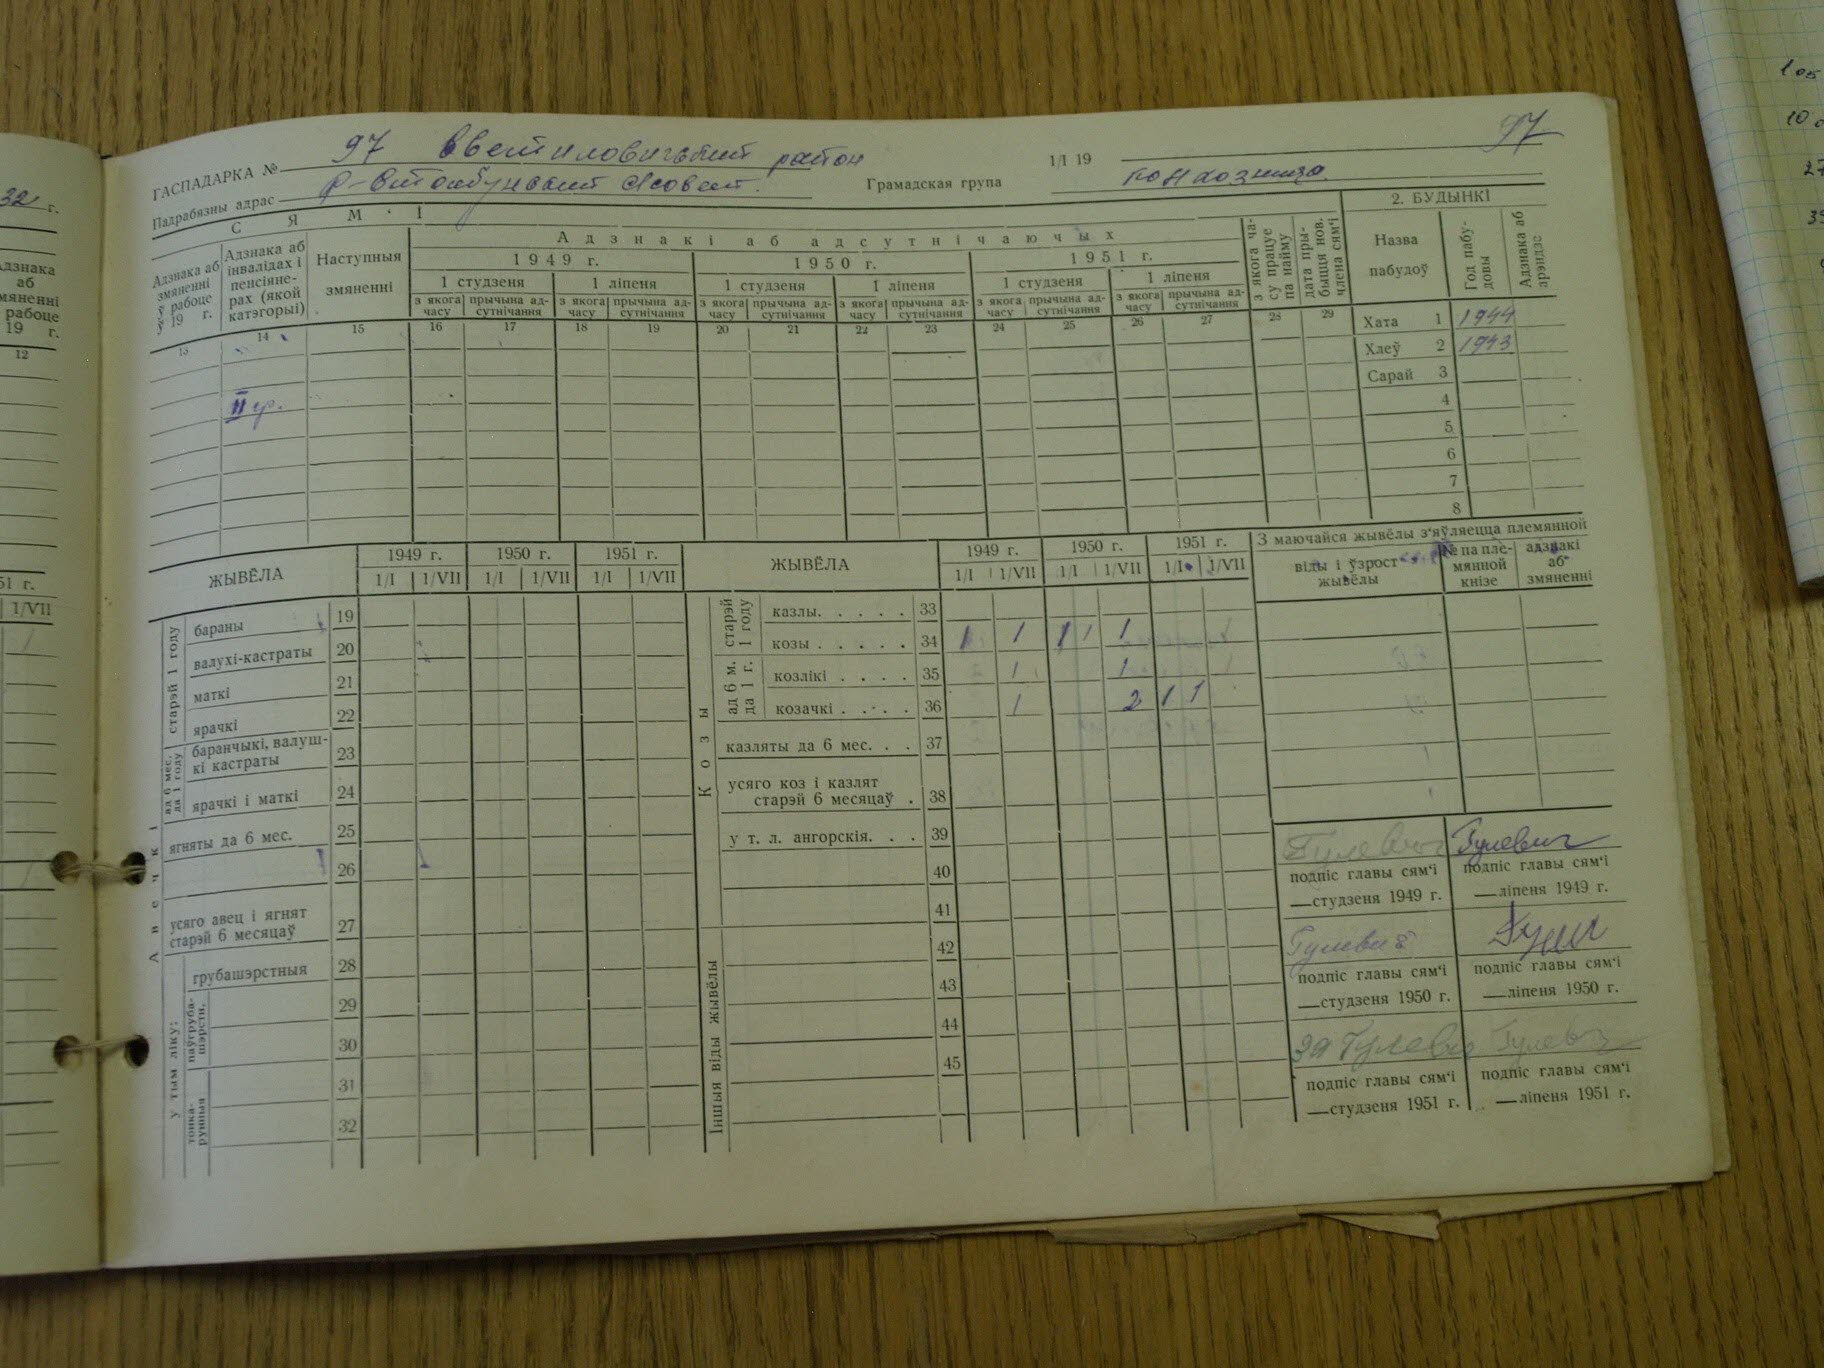 97
ГАСПАДАРКА № 97 район
1/I 19
Падрабязны адрас
Грамадская група
С Я М ' І
2. БУДЫНКІ
Адзнака аб змяненні ў рабоце ў 19 г.
Адзнака аб інвалідах і пенсіяне-рах (якой катэгорыі)
Наступныя змяненні
Адзнакі аб адсутнічаючых
1949 г. 1950 г. 1951 г.
1 студзеня 1 ліпеня 1 студзеня 1 ліпеня 1 студзеня 1 ліпеня
з якога часу прычына ад-сутнічання з якога часу прычына ад-сутнічання з якога часу прычына ад-сутнічання з якога часу прычына ад-сутнічання з якога часу прычына ад-сутнічання з якога часу прычына ад-сутнічання
з якога ча-су працуе па найму
дата пры-быцця нов. члена сям'і
Назва пабудоў
Год пабу-довы
Адзнака аб арэндзе
13 14 15 16 17 18 19 20 21 22 23 24 25 26 27 28 29
Хата 1 1944
Хлеў 2 1943
Сарай 3
II гр.
4
5
6
7
8
ЖЫВЁЛА 1949 г. 1950 г. 1951 г.
1/I 1/VII 1/I 1/VII 1/I 1/VII
Авечкі
старэй 1 году
бараны 19
валухі-кастраты 20
маткі 21
ярачкі 22
ад 6 мес. да 1 году
баранчыкі, валуш-кі кастраты 23
ярачкі і маткі 24
ягняты да 6 мес. 25
26
усяго авец і ягнят старэй 6 месяцаў 27
у тым ліку:
грубашэрстныя 28
паўгруба-шэрсти.
29
30
тонка-рунныя
31
32
ЖЫВЁЛА 1949 г. 1950 г. 1951 г.
1/I 1/VII 1/I 1/VII 1/I 1/VII
Козы
старэй 1 году
казлы. . . . . 33
козы . . . . . 34 1 1 1 1 1
ад 6 м. да 1 г.
козлікі . . . . 35 1 1
козачкі . . . . 36 1 2 1 1
казляты да 6 мес. . . 37
усяго коз і казлят старэй 6 месяцаў . 38
у т. л. ангорскія. . . 39
40
41
Іншыя віды жывёлы
42
43
44
45
З маючайся жывёлы з'яўляецца племянной
віды і ўзрост жывёлы
№ па пле-мянной кнізе
адзнакі аб змяненні
Гулевич Гулевич
подпіс главы сям'і подпіс главы сям'і
—студзеня 1949 г. —ліпеня 1949 г.
Гулевич
подпіс главы сям'і подпіс главы сям'і
—студзеня 1950 г. —ліпеня 1950 г.
за Гулевич Гулевич
подпіс главы сям'і подпіс главы сям'і
—студзеня 1951 г. —ліпеня 1951 г.
32 г.
Адзнака аб змяненні рабоце 19 г.
12
51 г.
1/VII